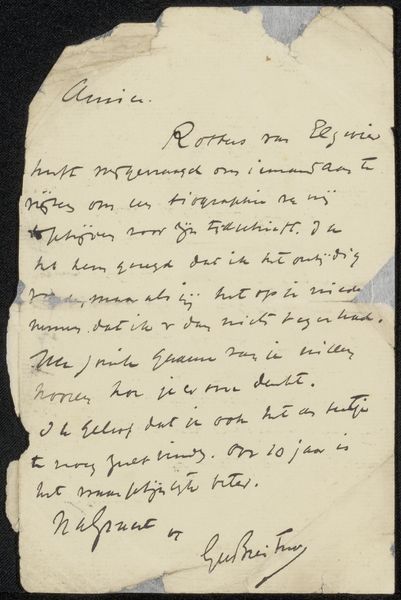 Amice.
Rössing van Elzevier
heeft mij gevraagd om iemand aan te
wijzen om een biographie van mij
te schrijven voor zijn tijdschrift. Ik
heb hem gezegd dat ik het ontijdig
vond, maar als jij het op je wilde
nemen dat ik er dan niets tegen had.
Nu zou ik gaarne van je willen
hooren hoe je er over denkt.
Ik geloof dat je ook het een beetje
te vroeg zult vinden. Over 10 jaar is
het waarschijnlijk beter.
Na Groet
GHBreitner